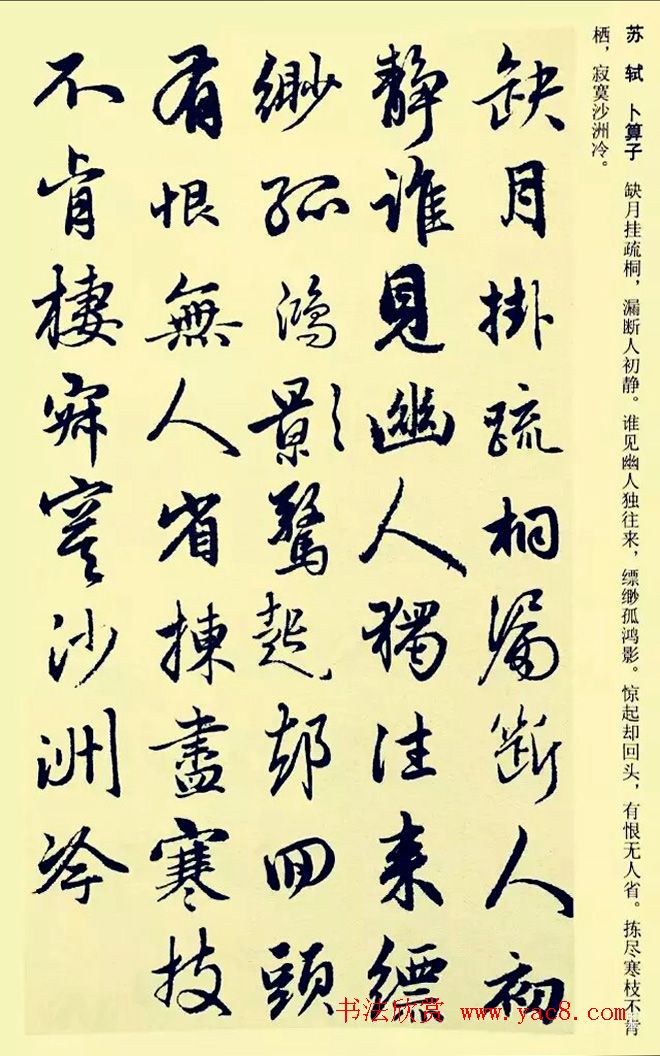 苏 轼 卜算子 缺月挂疏桐，漏断人初静。谁见幽人独往来，缥缈孤鸿影。惊起却回头，有恨无人省。拣尽寒枝不肯
栖，寂寞沙洲冷。
缺月掛疏桐漏斷人初
靜誰見幽人獨往來縹
緲孤鴻影驚起却回頭
有恨無人省揀盡寒枝
不肯棲寂寞沙洲冷
书法欣赏 www.yac8.com